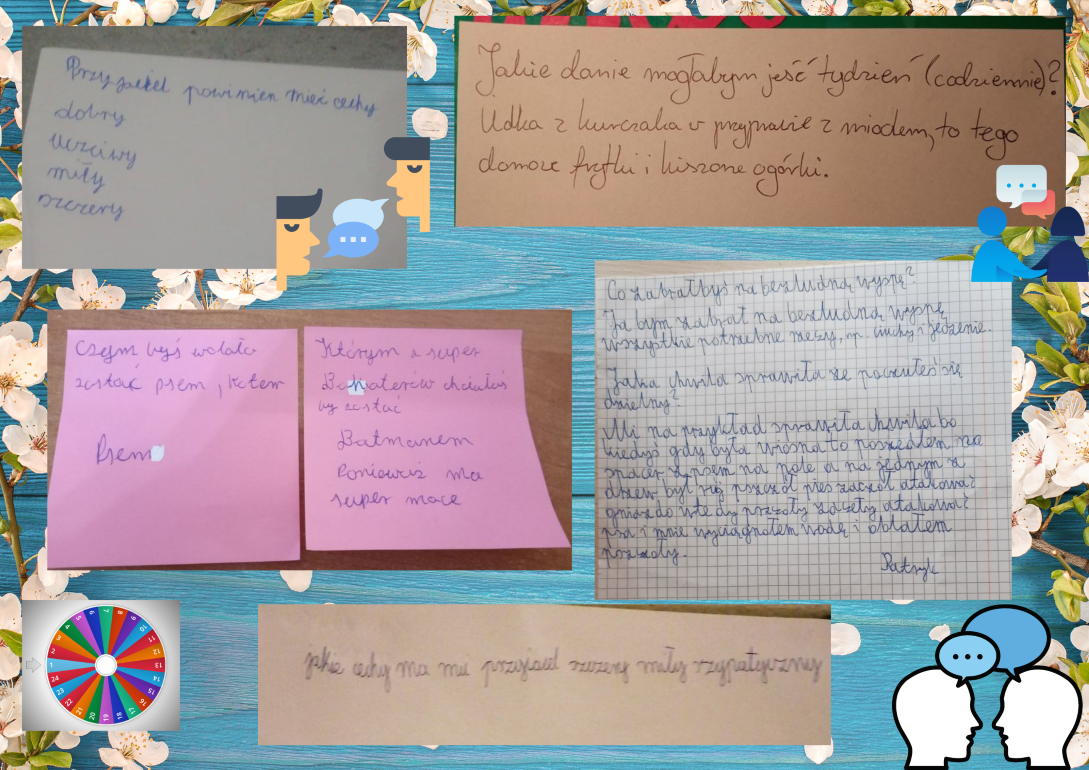 Przyjaciel powinien mieć cechy
dobry
uczciwy
miły
szczery
Jakie danie mogłabym jeść tydzień (codziennie)?
Udka z kurczaka w przyprawie z miodem, to tego
domoże frytki i kiszone ogórki.
Czym byś wolała
zostać psem, kotem
Psem
Którym z super
Bohaterów chciałaś
by zostać
Batmanem
Poniewirz ma
super moce
Co zabrałbyś na bezludną wyspę?
Ja bym zabrał na bezludną wyspę
wszystkie potrzebne rzeży, np. ciuchy i jedzenie.
Jaka chwila sprawiła że poczułeś się
dzielny?
Mi na przykład sprawiła chwila bo
kiedyś gdy była wiosna to poszedłem na
spacer z psem na pole a na jednym z
drzew był rój pszczół pies zaczął atakować
gniazdo wtedy pszczoły zaczęły atakować
psa i mnie wyciągnołem wodę i oblałem
pszczoły.
Patryk
1 2 3 4 5 6 7 8 9 10 11 12 13 14 15 16 17 18 19 20 21 22 23 24
jakie cechy ma mieć przyjaciel szczery miły sympatyczny